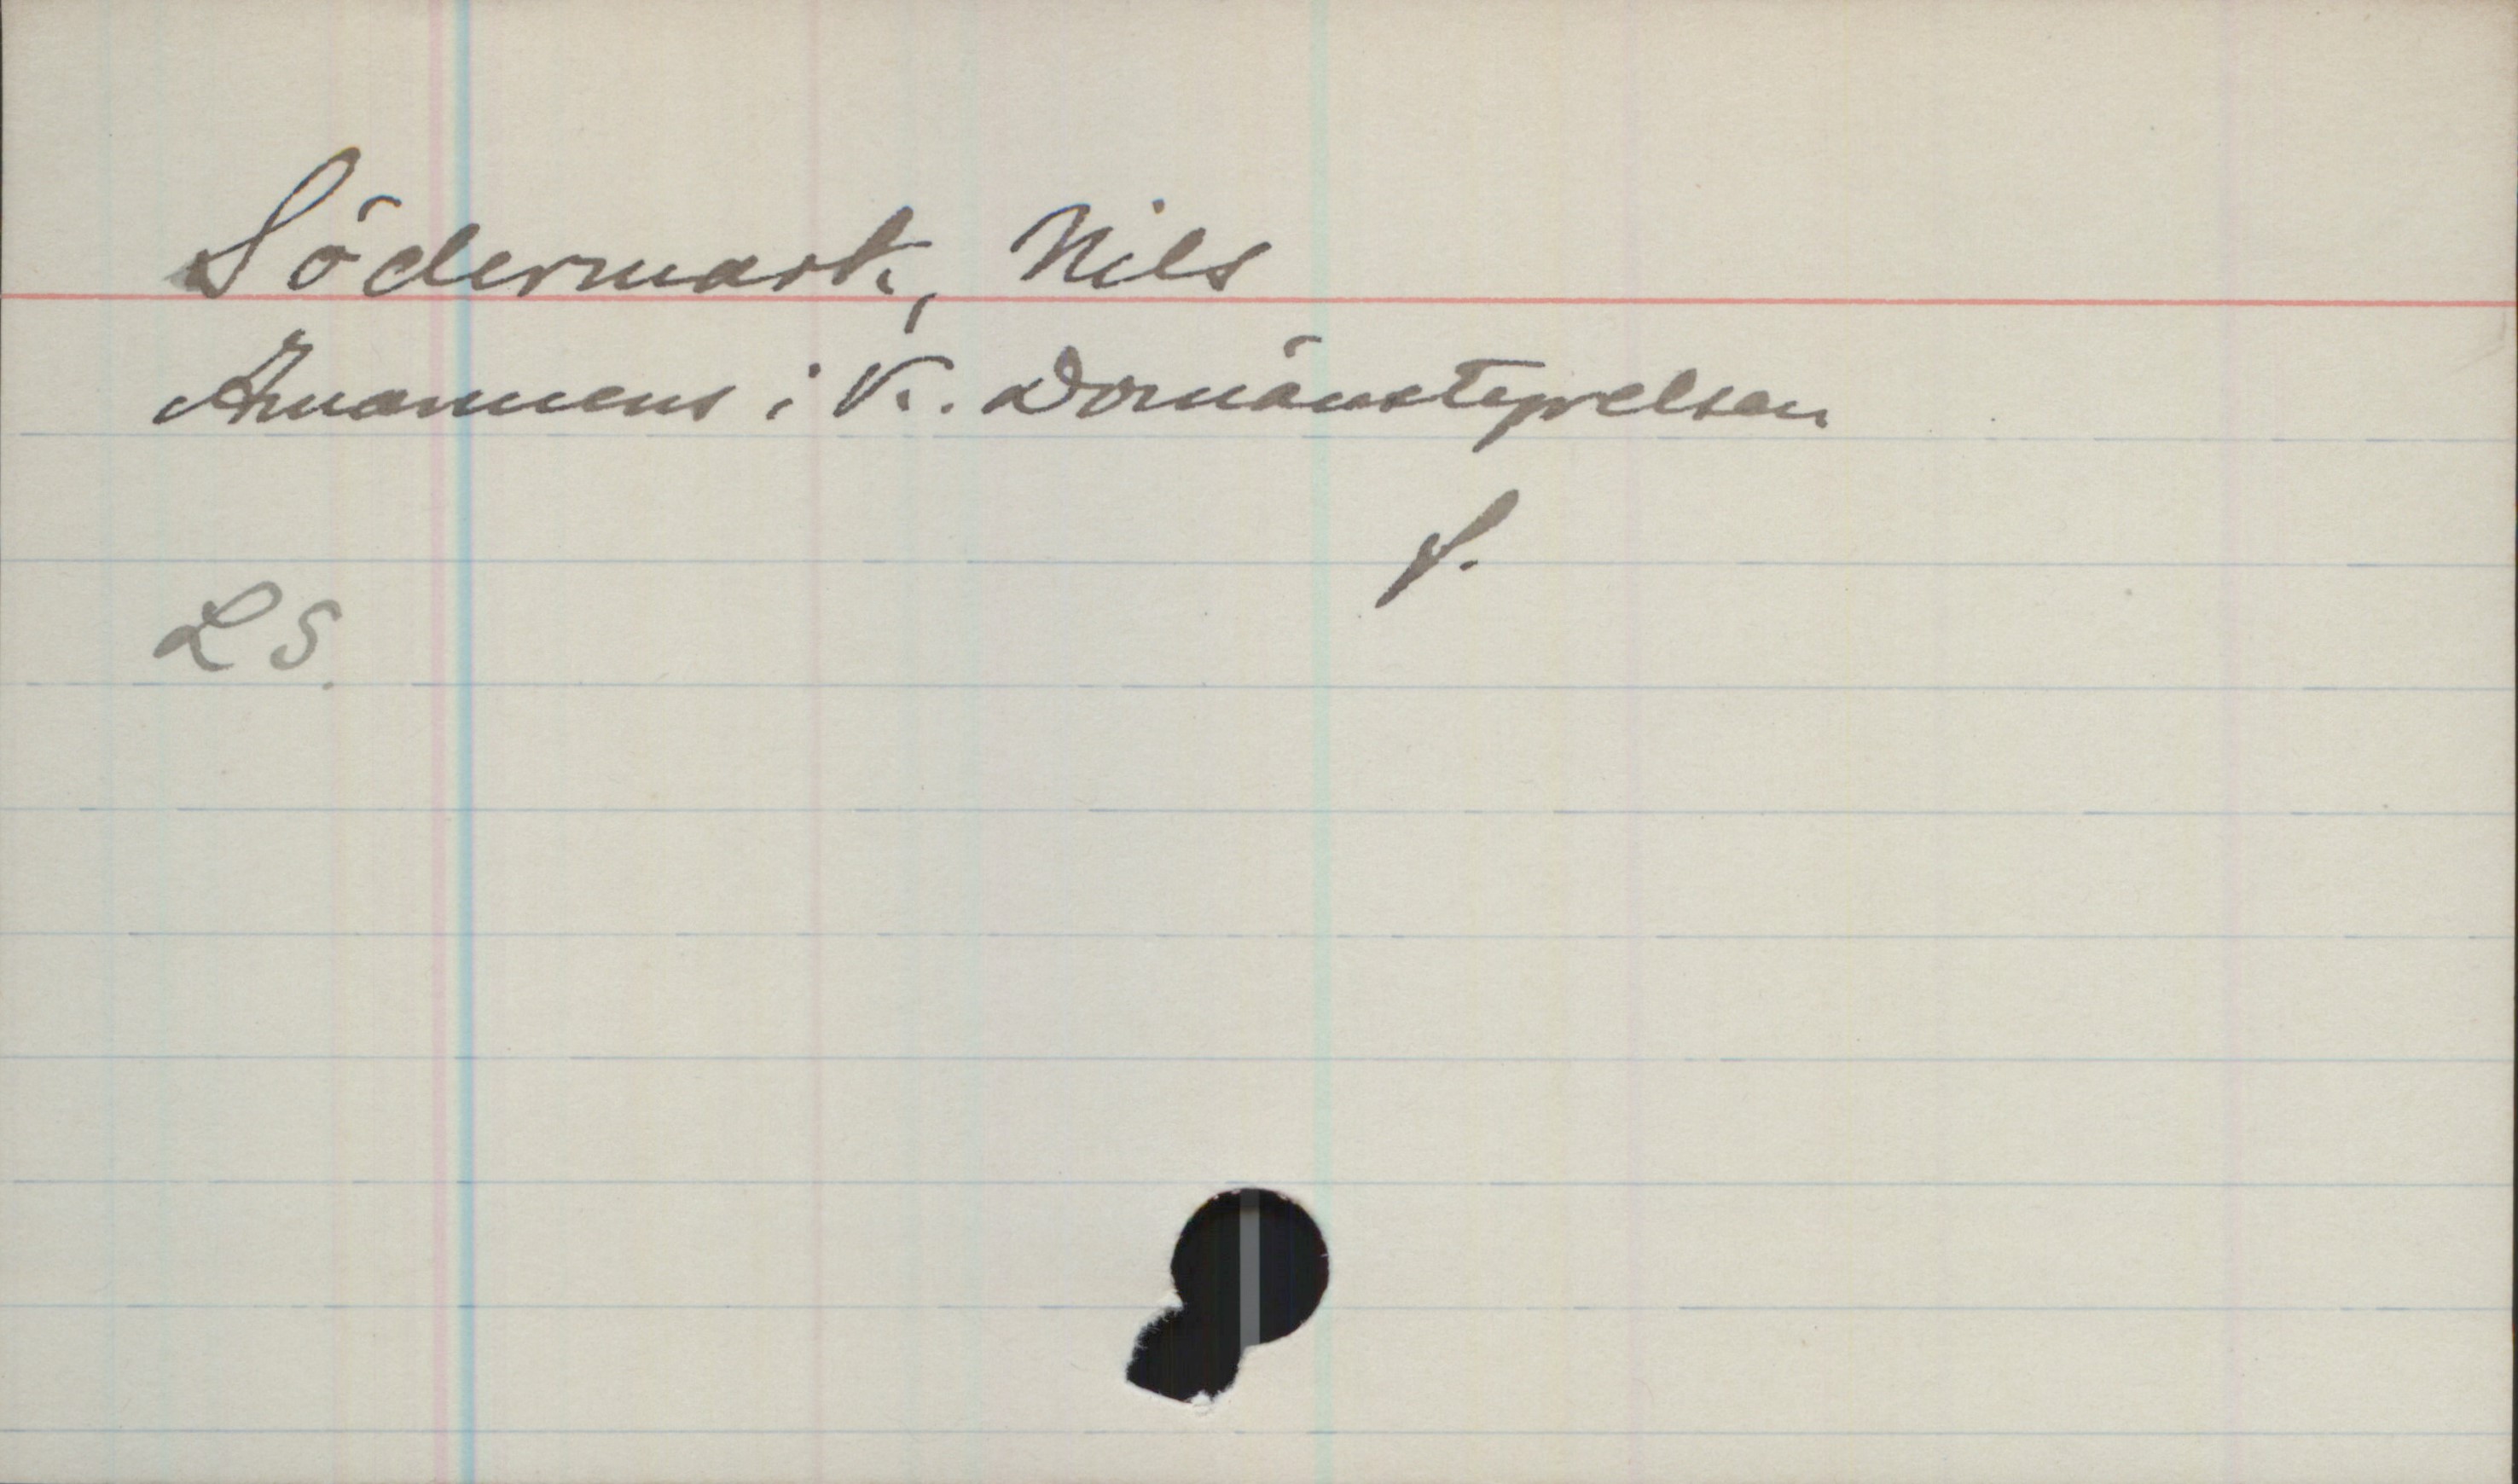 Södermark, Nils
Amanuens i K. Domänstyrelsen
f.
LS.